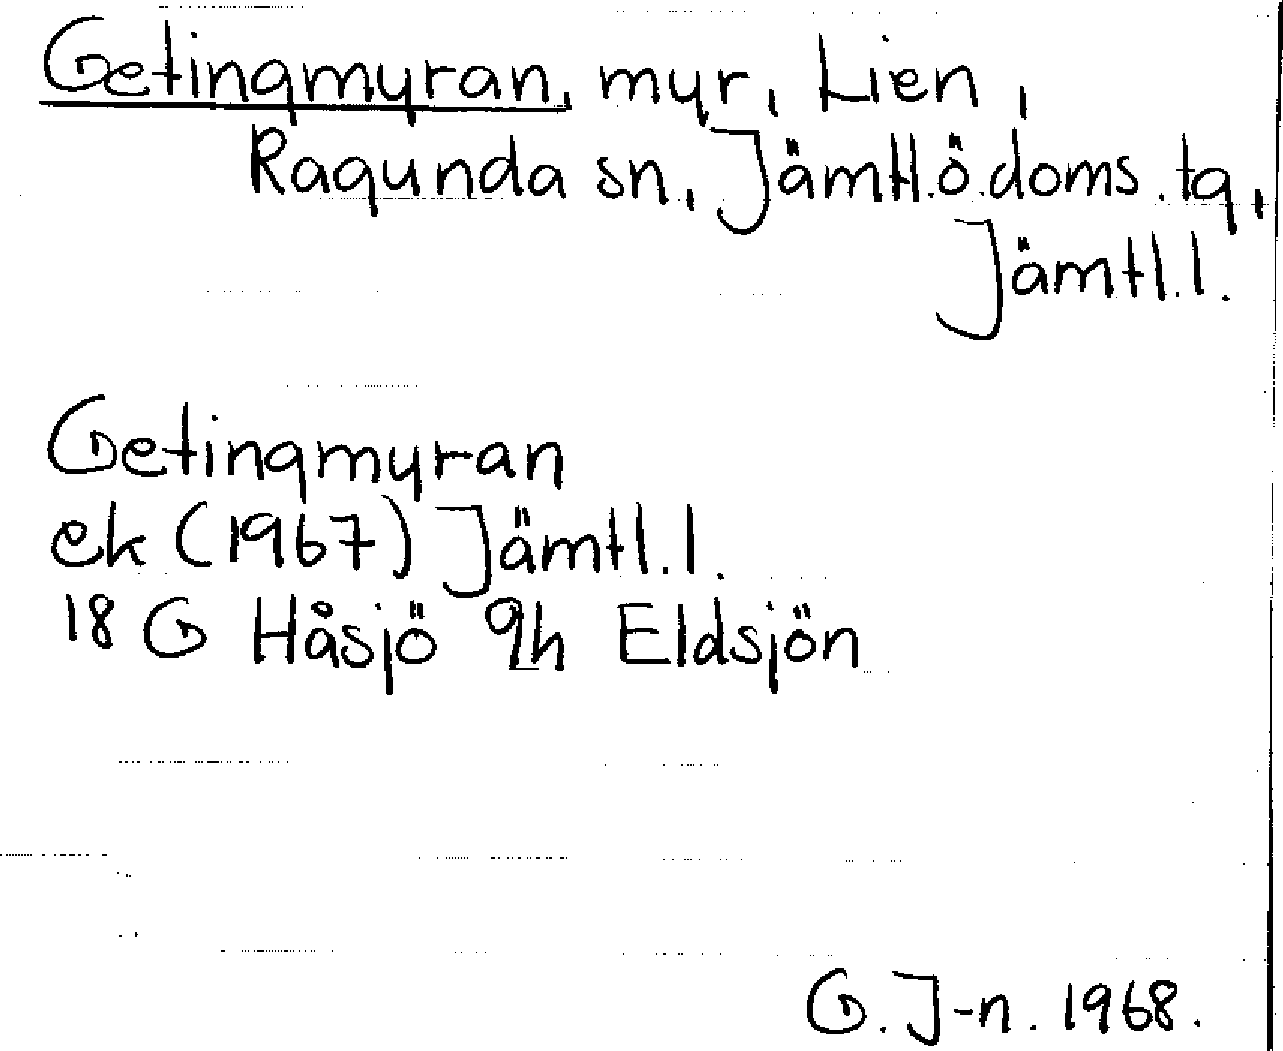 Getingmyran, myr, Lien,
Ragunda sn, Jämtl.ö.doms.tg,
Jämtl.l.
Getingmyran
ek (1967) Jämtl.l.
18 G Håsjö 9h Eldsjön
G. J-n. 1968.